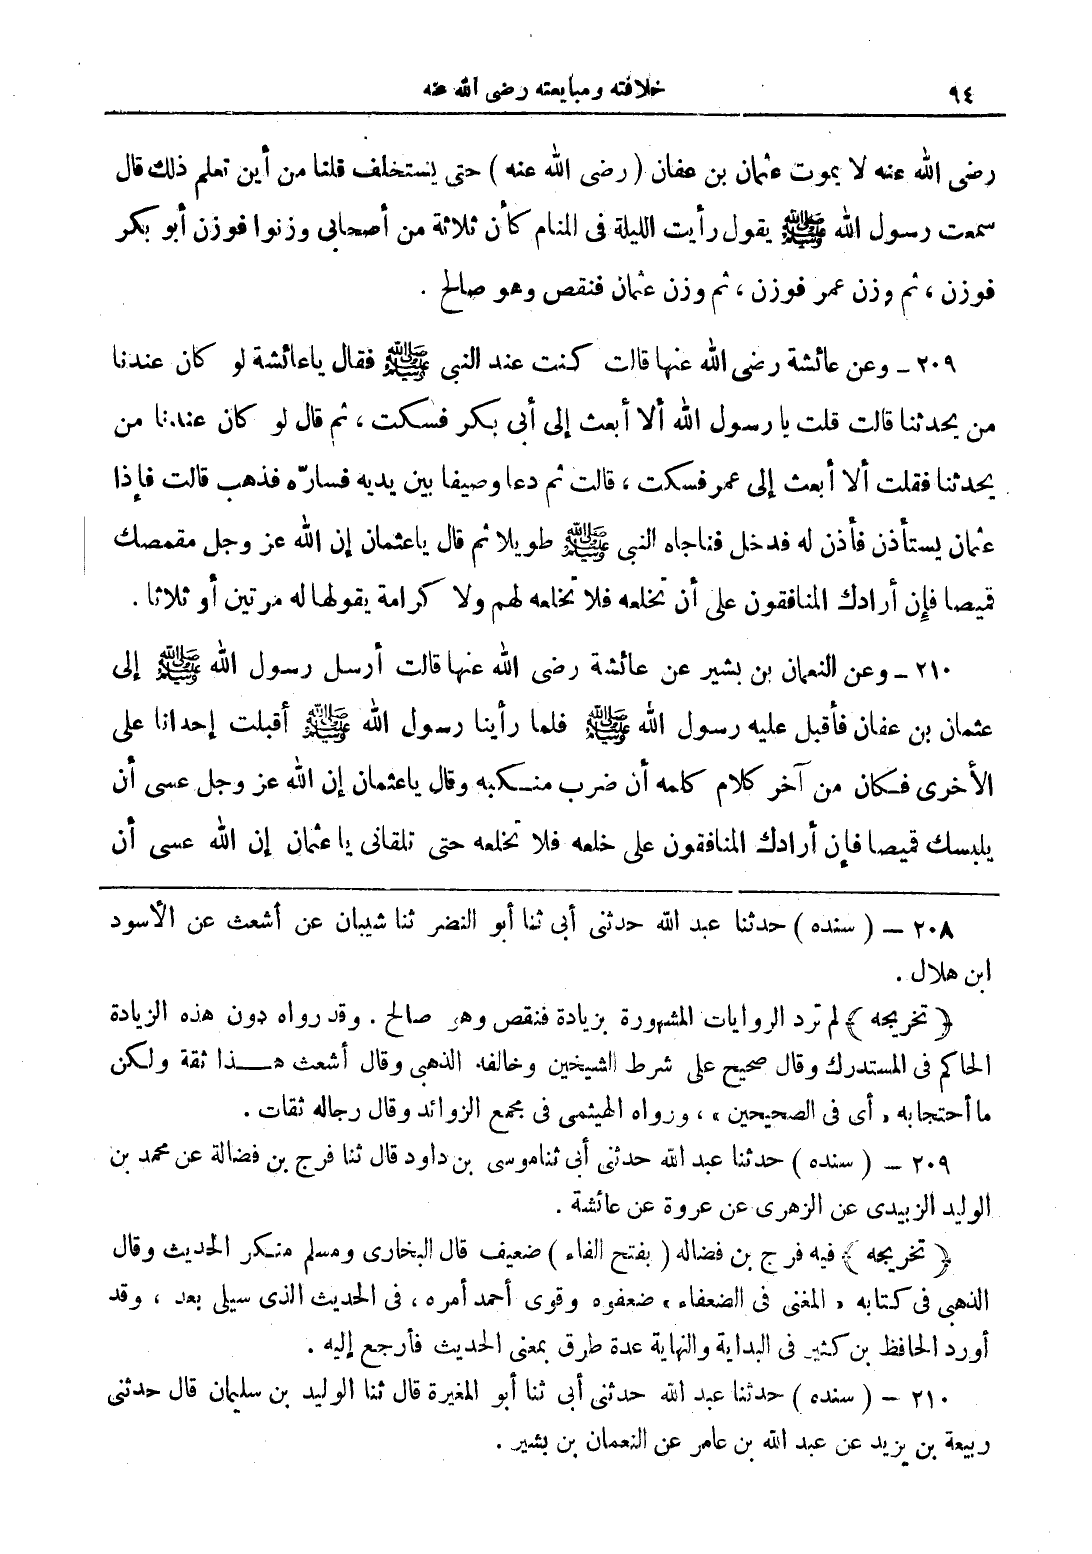 ٩٤ خلافته ومبايعته رضى الله عنه
رضى الله عنه لا يموت عثمان بن عفان ( رضى الله عنه ) حتى يستخلف قلنا من أين تعلم ذلك قال
سمعت رسول الله ﷺ يقول رأيت الليلة فى المنام كأن ثلاثة من أصحابى وزنوا فوزن أبو بكر
فوزن ، ثم وزن عمر فوزن ، ثم وزن عثمان فنقص وهو صالح .
٢٠٩ ـ وعن عائشة رضى الله عنها قالت كنت عند النبى ﷺ فقال ياعائشة لو كان عندنا
من يحدثنا قالت قلت يا رسول الله ألا أبعث إلى أبى بكر فسكت ، ثم قال لو كان عندنا من
يحدثنا فقلت ألا أبعث إلى عمر فسكت ، قالت ثم دعا وصيفا بين يديه فسارّه فذهب قالت فإذا
عثمان يستأذن فأذن له فدخل فناجاه النبى ﷺ طويلا ثم قال ياعثمان إن الله عز وجل مقمصك
قميصا فإن أرادك المنافقون على أن تخلعه فلا تخلعه لهم ولا كرامة يقولها له مرتين أو ثلاثا .
٢١٠ ـ وعن النعمان بن بشير عن عائشة رضى الله عنها قالت أرسل رسول الله ﷺ إلى
عثمان بن عفان فأقبل عليه رسول الله ﷺ فلما رأينا رسول الله ﷺ أقبلت إحدانا على
الأخرى فكان من آخر كلام كلمه أن ضرب منكبه وقال ياعثمان إن الله عز وجل عسى أن
يلبسك قميصا فإن أرادك المنافقون على خلعه فلا تخلعه حتى تلقانى يا عثمان إن الله عسى أن
٢٠٨ – ( سنده ) حدثنا عبد الله حدثنى أبى ثنا أبو النضر ثنا شيبان عن أشعث عن الأسود
ابن هلال .
﴿ تخريجه ﴾ لم ترد الروايات المشهورة بزيادة فنقص وهو صالح . وقد رواه دون هذه الزيادة
الحاكم فى المستدرك وقال صحيح على شرط الشيخين وخالفه الذهبى وقال أشعث هذا ثقة ولكن
ما أحتجا به « أى فى الصحيحين » ، ورواه الهيثمى فى مجمع الزوائد وقال رجاله ثقات .
٢٠٩ – ( سنده ) حدثنا عبد الله حدثنى أبى ثنا موسى بن داود قال ثنا فرج بن فضالة عن محمد بن
الوليد الزبيدى عن الزهرى عن عروة عن عائشة .
﴿ تخريجه ﴾ فيه فرج بن فضاله ( بفتح الفاء ) ضعيف قال البخارى ومسلم منكر الحديث وقال
الذهبى فى كتابه « المغنى فى الضعفاء » ضعفوه وقوى أحمد أمره ، فى الحديث الذى سيلى بعد ، وقد
أورد الحافظ بن كثير فى البداية والنهاية عدة طرق بمعنى الحديث فأرجع إليه .
٢١٠ – ( سنده ) حدثنا عبد الله حدثنى أبى ثنا أبو المغيرة قال ثنا الوليد بن سليمان قال حدثنى
ربيعة بن يزيد عن عبد الله بن عامر عن النعمان بن بشير .